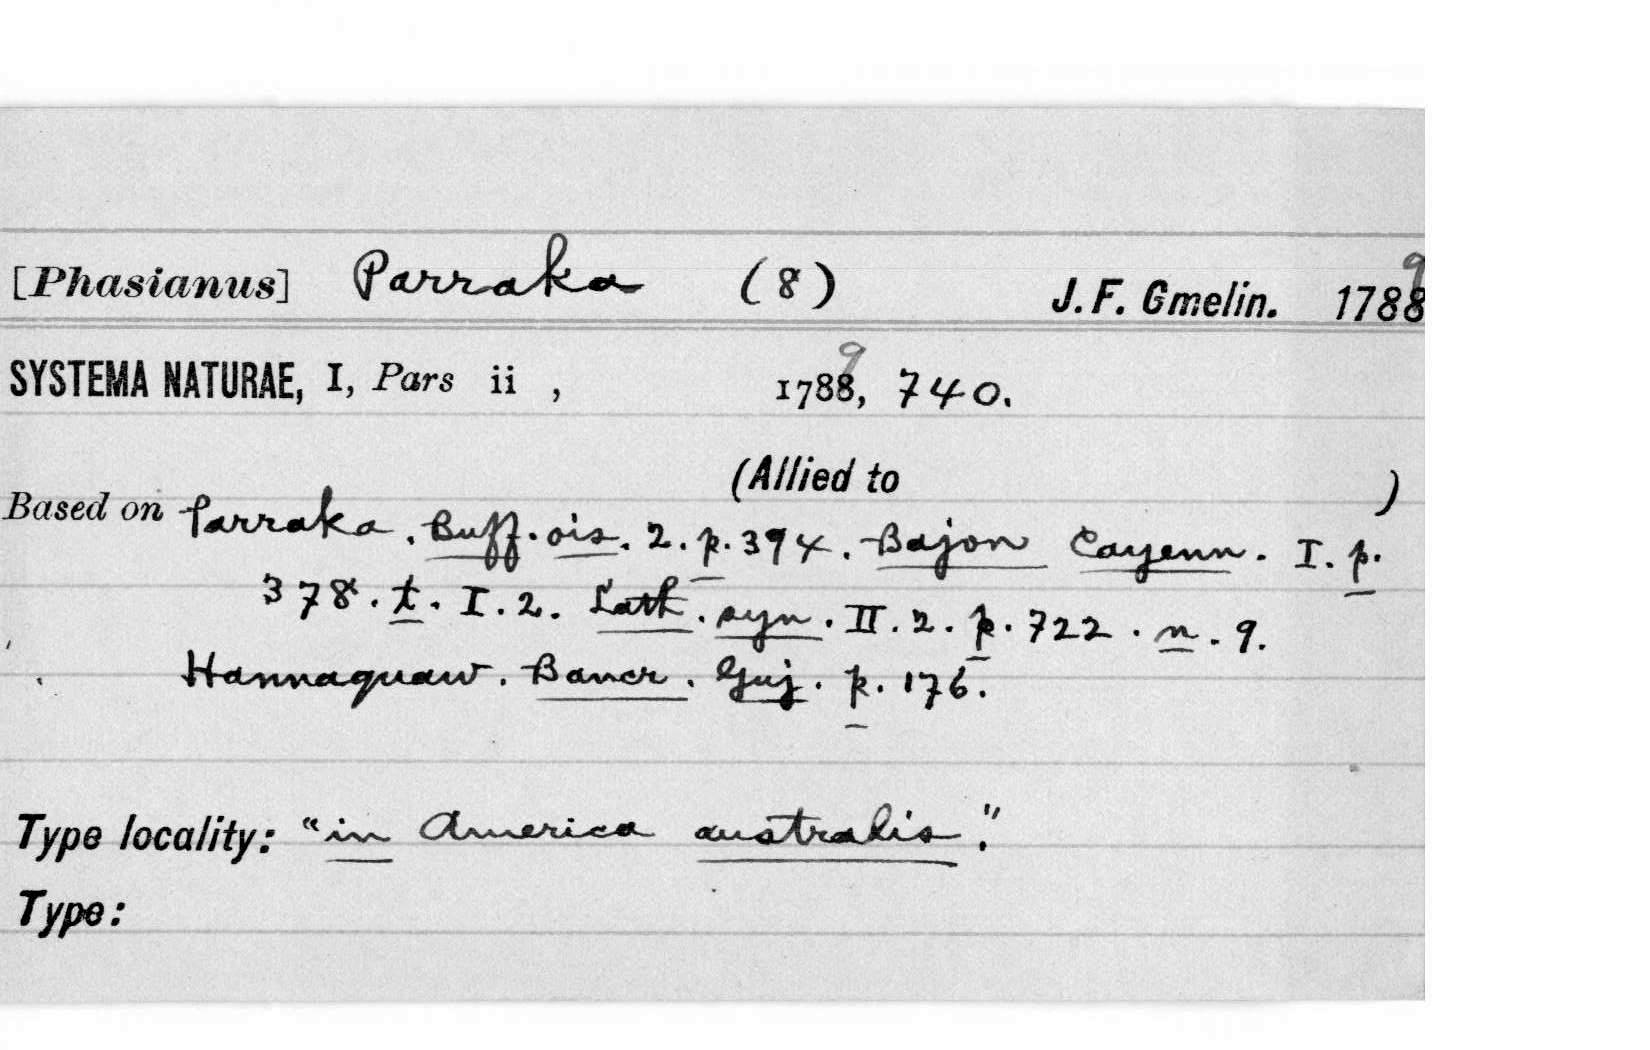 [Phasianus] Parraka (8) J. F. Gmelin. 17889
SYSTEMA NATURAE, I, Pars ii , 17889, 740.
(Allied to )
Based on Parraka. Buff. ois. 2. p. 394. Bajon Cayenn. I. p.
378. t. I. 2. Lath. syn. II. 2. p. 722. n. 9.
Hannaquaw. Bancr. Guj. p. 176.
Type locality: "in America australis."
Type: